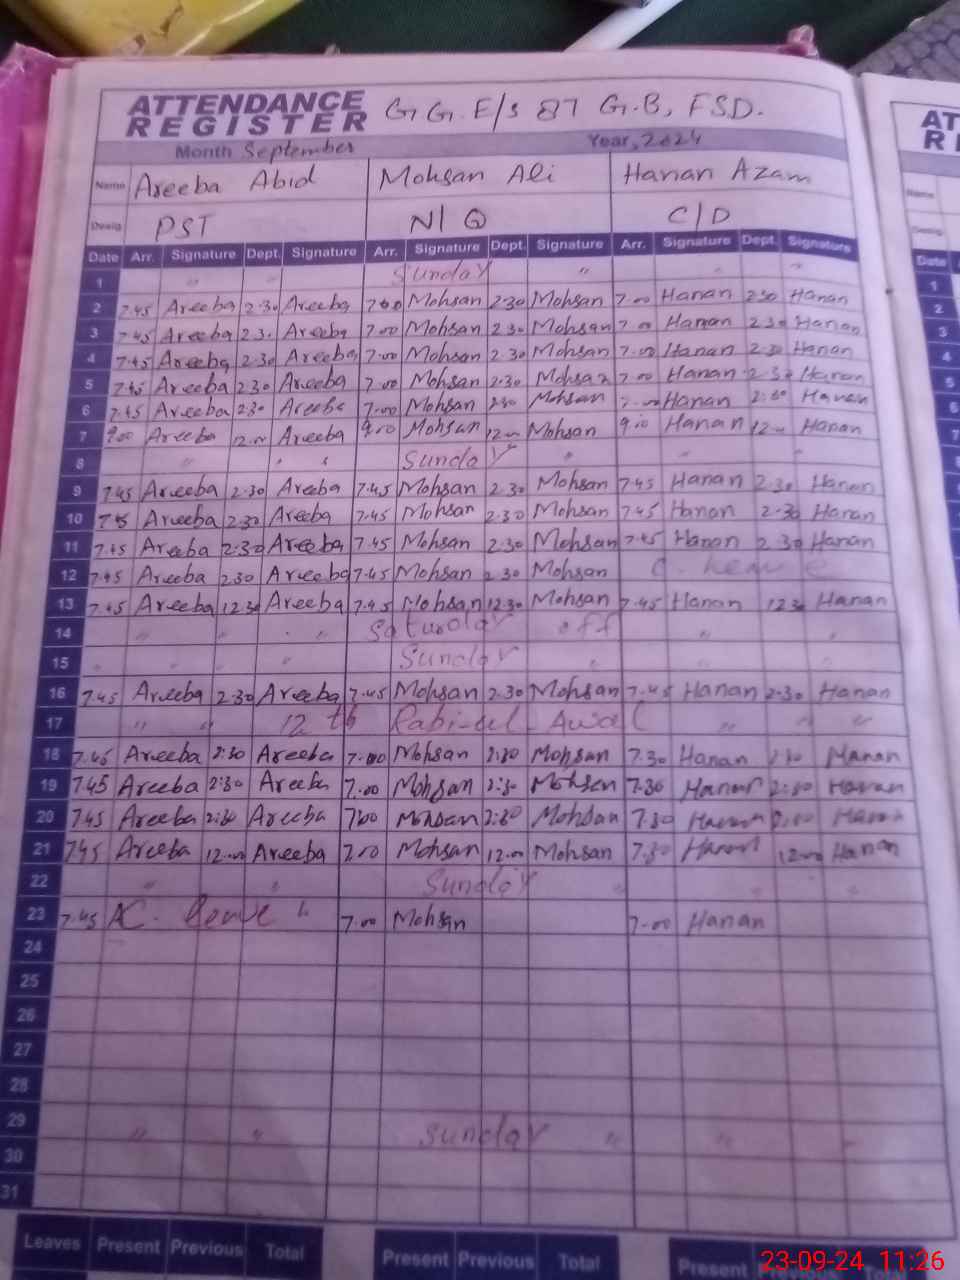 ATTENDANCE REGISTER G.G.E/S 87 G.B, FSD.
Month September Year, 2024
Name Areeba Abid Mohsan Ali Hanan Azam
Desig PST N/Q C/D
Date Arr. Signature Dept. Signature Arr. Signature Dept. Signature Arr. Signature Dept. Signature
1 " " Sunday " " "
2 7.45 Areeba 2.30 Areeba 7.00 Mohsan 2.30 Mohsan 7.00 Hanan 2.30 Hanan
3 7.45 Areeba 2.3. Areeba 7.00 Mohsan 2.30 Mohsan 7.00 Hanan 2.30 Hanan
4 7.45 Areeba 2.30 Areeba 7.00 Mohsan 2.30 Mohsan 7.00 Hanan 2.30 Hanan
5 7.45 Areeba 2.30 Areeba 7.00 Mohsan 2.30 Mohsan 7.00 Hanan 2.30 Hanan
6 7.45 Areeba 2.30 Areeba 7.00 Mohsan 2.30 Mohsan 7.00 Hanan 2:30 Hanan
7 9.00 Areeba 12.00 Areeba 9.00 Mohsan 12.00 Mohsan 9.00 Hanan 12.00 Hanan
8 " " " Sunday " " "
9 7.45 Areeba 2.30 Areeba 7.45 Mohsan 2.30 Mohsan 7.45 Hanan 2.30 Hanan
10 7.45 Areeba 2.30 Areeba 7.45 Mohsan 2.30 Mohsan 7.45 Hanan 2.30 Hanan
11 7.45 Areeba 2.30 Areeba 7.45 Mohsan 2.30 Mohsan 7.45 Hanan 2.30 Hanan
12 7.45 Areeba 2.30 Areeba 7.45 Mohsan 2.30 Mohsan C. Leave
13 7.45 Areeba 12.30 Areeba 7.45 Mohsan 12.30 Mohsan 7.45 Hanan 12.30 Hanan
14 " " " " Saturday off " "
15 " " " " Sunday " " "
16 7.45 Areeba 2.30 Areeba 7.45 Mohsan 2.30 Mohsan 7.45 Hanan 2.30 Hanan
17 " " 12 th Rabi-ul-Awal " " "
18 7.45 Areeba 2:30 Areeba 7.00 Mohsan 2:30 Mohsan 7.30 Hanan 2:30 Hanan
19 7.45 Areeba 2:30 Areeba 7.00 Mohsan 2:30 Mohsan 7.30 Hanan 2:30 Hanan
20 7.45 Areeba 2:30 Areeba 7.00 Mohsan 2:30 Mohsan 7.30 Hanan 2:30 Hanan
21 7.45 Areeba 12.00 Areeba 7.00 Mohsan 12.00 Mohsan 7.30 Hanan 12.00 Hanan
22 " " Sunday " " "
23 7.45 C. Leave " 7.00 Mohsan 7.00 Hanan
24
25
26
27
28
29 " " Sunday " " "
30
31
Leaves Present Previous Total Present Previous Total Present
Name
Desig
Date
1
2
3
4
5
6
7
23-09-24 11:26